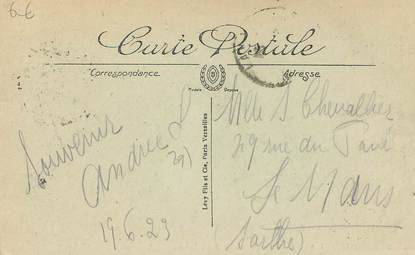 6-6
Carte Postale
Correspondance
Adresse
Modèle Déposé
Lévy Fils et Cie, Paris Versailles
Souvenir
Andrée L
19.6.23
Mlle S Chevallier
29 rue du Pavé
Le Mans
(Sarthe)